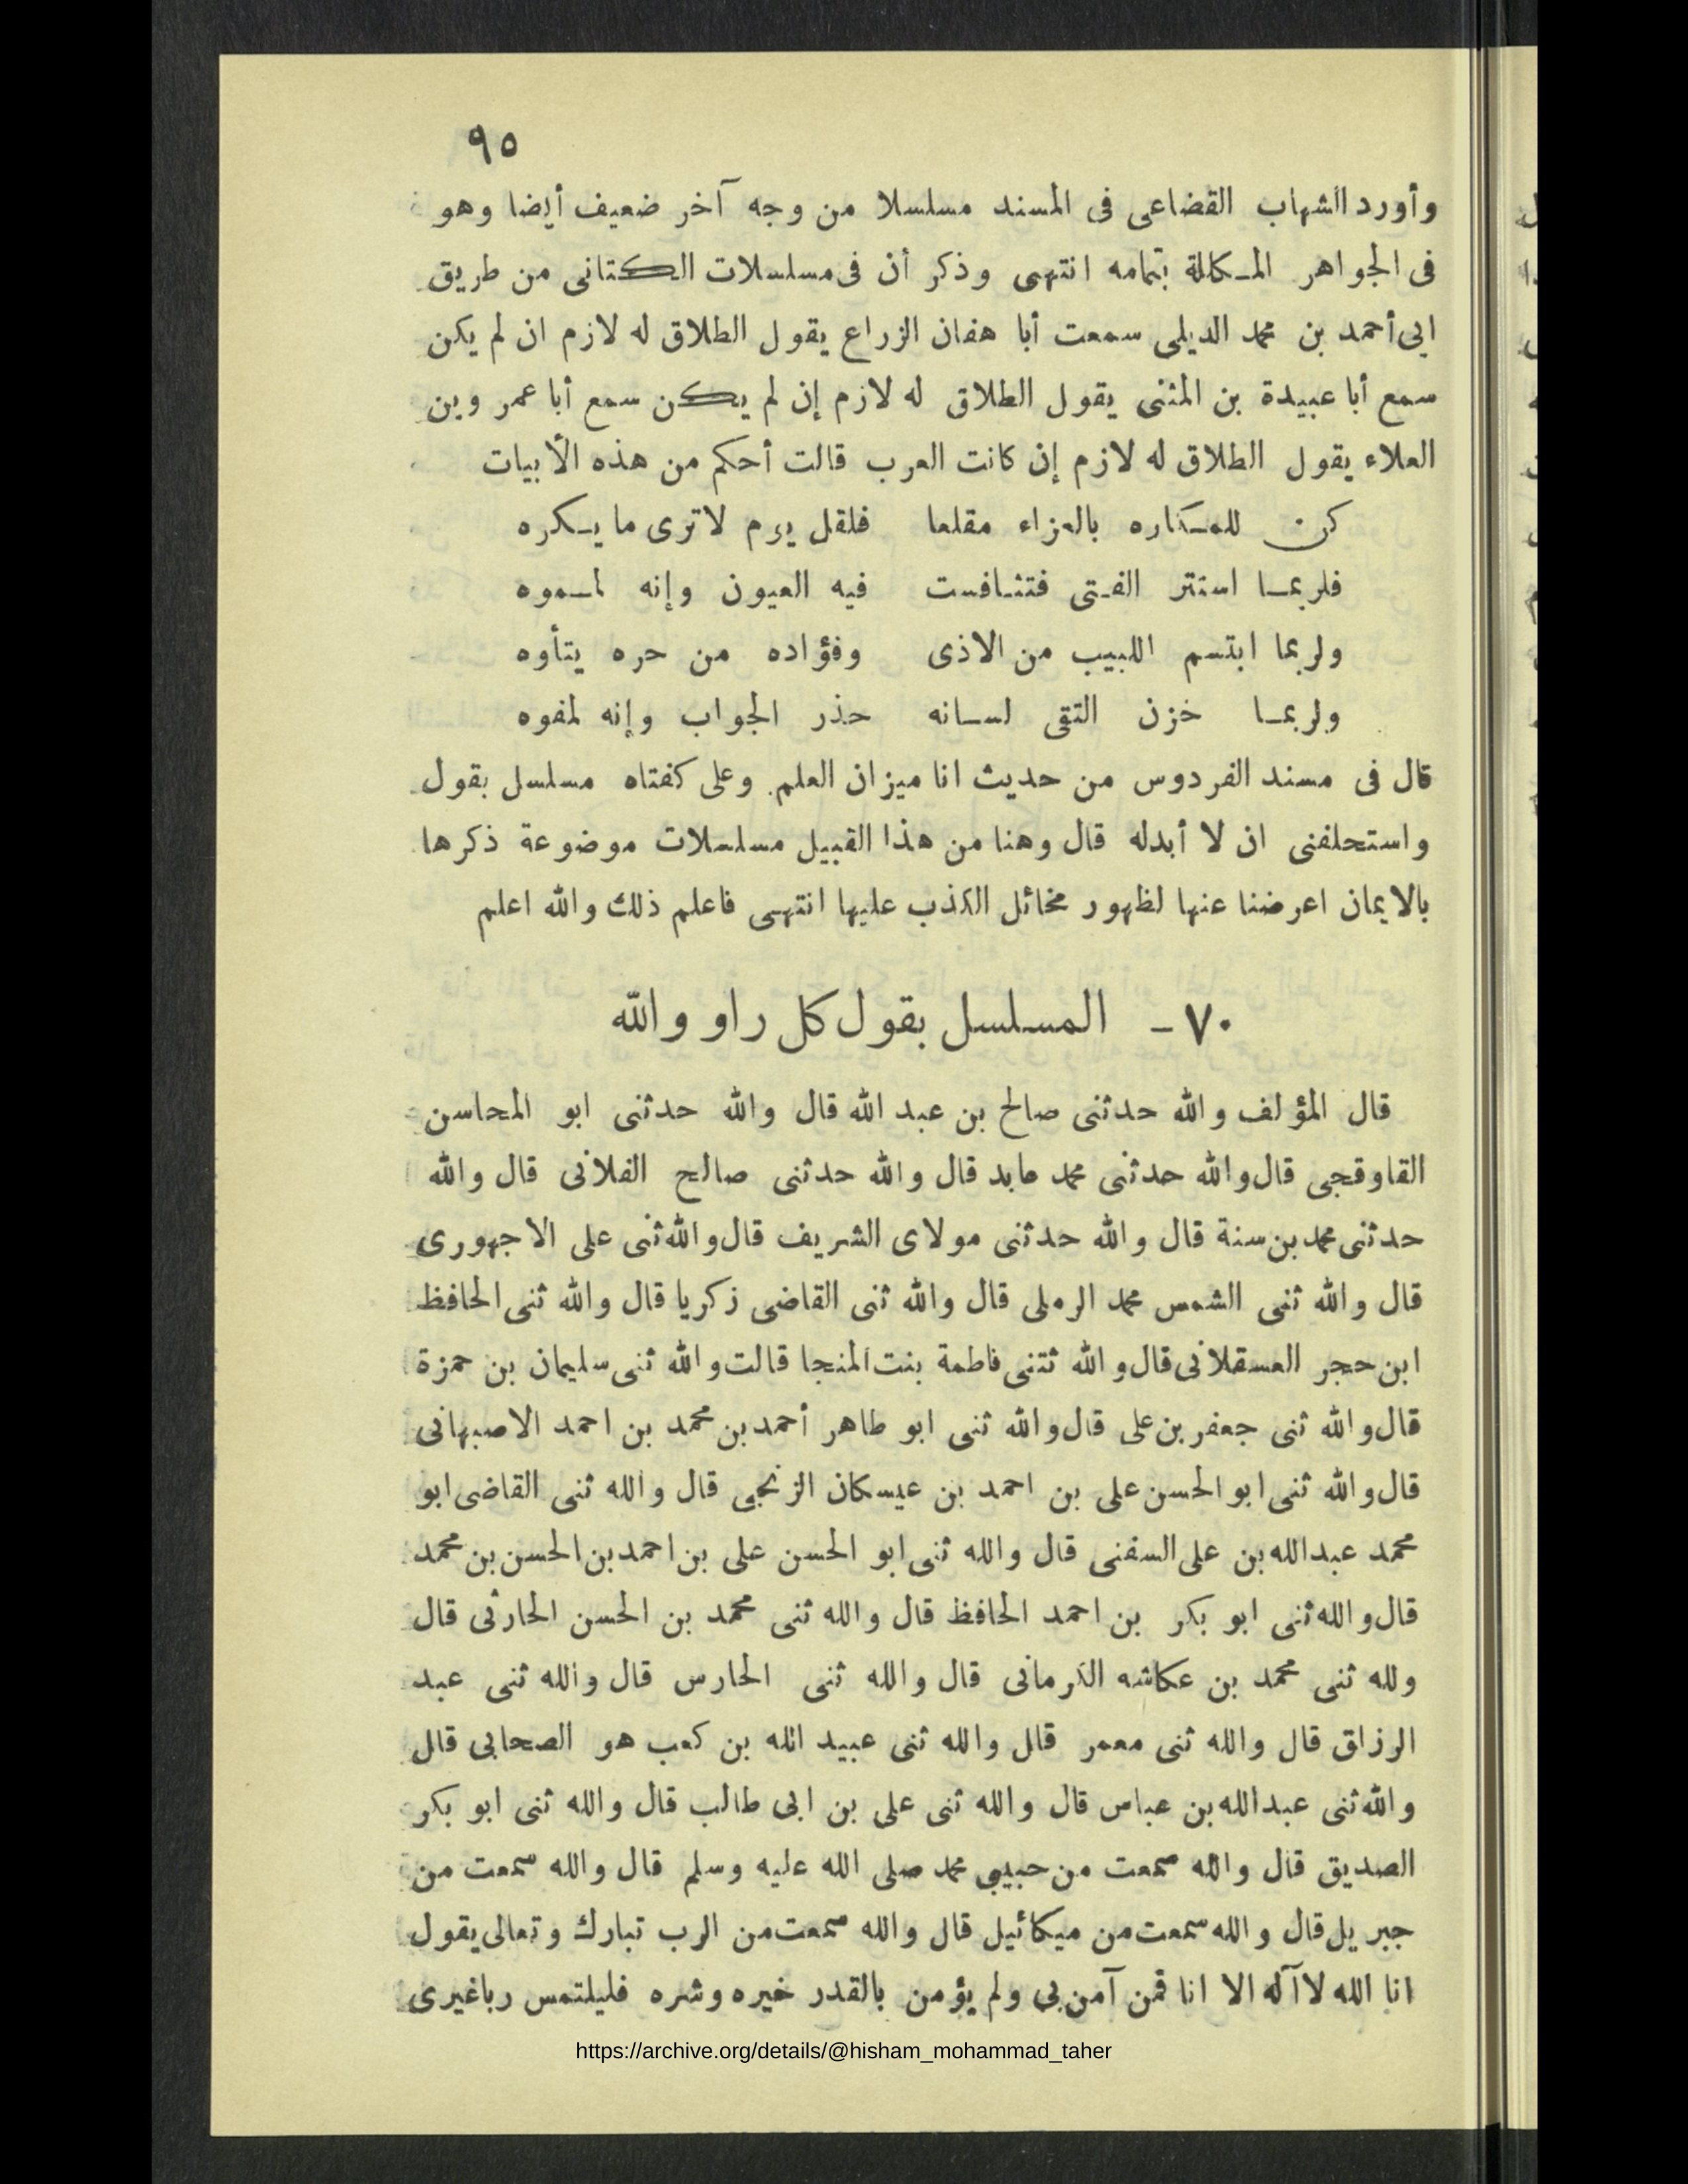 ٩٥
وأورد الشهاب القضاعى فى المسند مسلسلا من وجه آخر ضعيف أيضا وهو
فى الجواهر المكالة بتمامه انتهى وذكر أن فى مسلسلات الكتانى من طريق
ابى أحمد بن محمد الديلمى سمعت أبا هفان الزراع يقول الطلاق له لازم ان لم يكن
سمع أبا عبيدة بن المثنى يقول الطلاق له لازم إن لم يكن سمع أبا عمر وبن
العلاء يقول الطلاق له لازم إن كانت العرب قالت أحكم من هذه الأبيات
كن للمكاره بالعزاء مقلعا فلقل يرم لاترى ما يكره
فلربما استتر الفتى فتنافست فيه العيون وإنه لمموه
ولربما ابتسم اللبيب من الاذى وفؤاده من حره يتأوه
ولربما خزن التقى لسانه حذر الجواب وإنه لمفوه
قال فى مسند الفردوس من حديث انا ميزان العلم وعلى كفتاه مسلسل بقول
واستحلفنى ان لا أبدله قال وهنا من هذا القبيل مسلسلات موضوعة ذكرها
بالايمان اعرضنا عنها لظهور مخائل الكذب عليها انتهى فاعلم ذلك والله اعلم
٧٠ - المسلسل بقول كل راو والله
قال المؤلف والله حدثنى صالح بن عبد الله قال والله حدثنى ابو المحاسن
القاوقجى قال والله حدثنى محمد عابد قال والله حدثنى صالح الفلانى قال والله
حدثنى محمد بن سنة قال والله حدثنى مولاى الشريف قال والله ثنى على الاجهورى
قال والله ثنى الشمس محمد الرملى قال والله ثنى القاضى زكريا قال والله ثنى الحافظ
ابن حجر العسقلانى قال والله ثتنى فاطمة بنت المنجا قالت والله ثنى سليمان بن حمزة
قال والله ثنى جعفر بن على قال والله ثنى ابو طاهر أحمد بن محمد بن احمد الاصبهانى
قال والله ثنى ابو الحسن على بن احمد بن عيسكان الزنجى قال والله ثنى القاضى ابو
محمد عبدالله بن على السفنى قال والله ثنى ابو الحسن على بن احمد بن الحسن بن محمد
قال والله ثنى ابو بكر بن احمد الحافظ قال والله ثنى محمد بن الحسن الحارثى قال
ولله ثنى محمد بن عكاشه الكرمانى قال والله ثنى الحارس قال والله ثنى عبد
الرزاق قال والله ثنى معمر قال والله ثنى عبيد الله بن كعب هو الصحابى قال
والله ثنى عبدالله بن عباس قال والله ثنى على بن ابى طالب قال والله ثنى ابو بكر
الصديق قال والله سمعت من حبيبى محمد صلى الله عليه وسلم قال والله سمعت من
جبريل قال والله سمعت من ميكائيل قال والله سمعت من الرب تبارك وتعالى يقول
انا الله لا آله الا انا فمن آمن بى ولم يؤمن بالقدر خيره وشره فليلتمس ربا غيرى
https://archive.org/details/@hisham_mohammad_taher